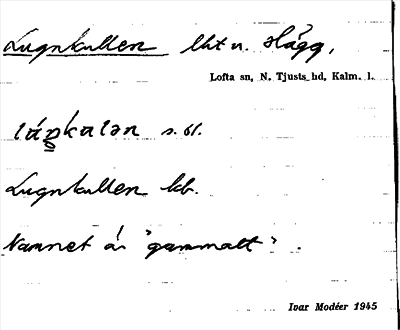 Lugnkullen lht u. Hägg,
Lofta sn, N. Tjusts hd, Kalm. l.
s. st.
Lugnkullen kb.
Namnet är "gammalt".
Ivar Modéer 1945